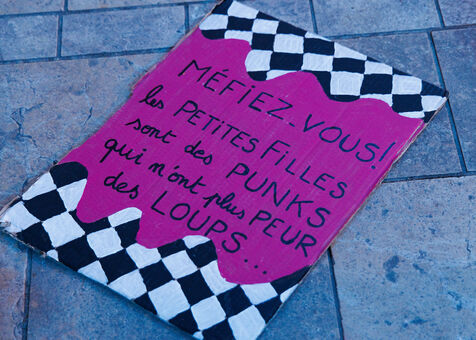 MÉFIEZ-VOUS!
les PETITES FILLES
sont des PUNKS
qui n'ont plus PEUR
des LOUPS...